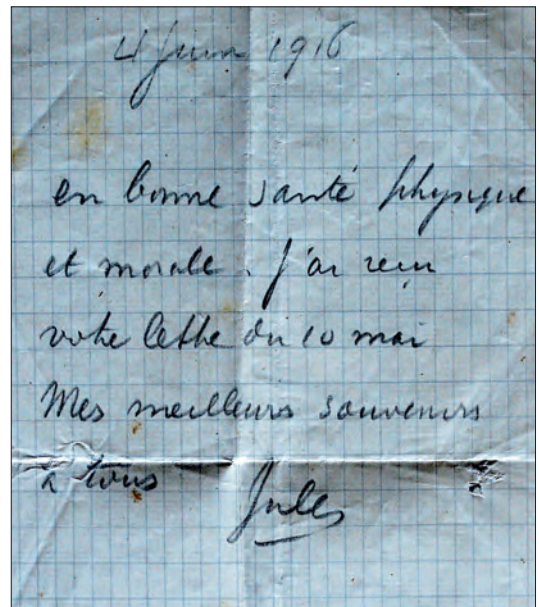 4 Juin 1916
en bonne santé physique
et morale. J'ai reçu
votre lettre du 10 mai
Mes meilleurs souvenirs
à tous
Jules